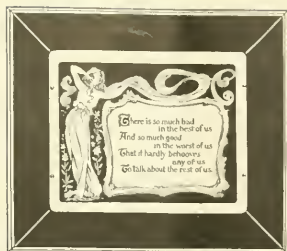 There is so much bad
in the best of us
And so much good
in the worst of us
That it hardly behooves
any of us
To talk about the rest of us.